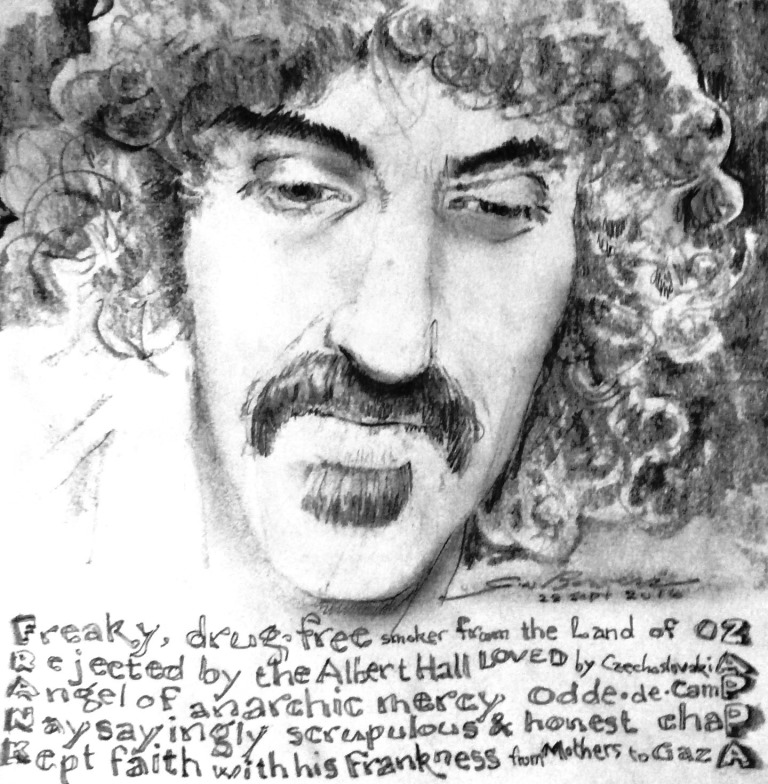 28 Sept 2016
Freaky, drug-free smoker from the Land of OZ
Rejected by the Albert Hall LOVED by CzechoslovakiA
Angel of anarchic mercy, odde·de·camP
Naysayingly scrupulous & honest chaP
Kept faith with his Frankness from Mothers to GazA